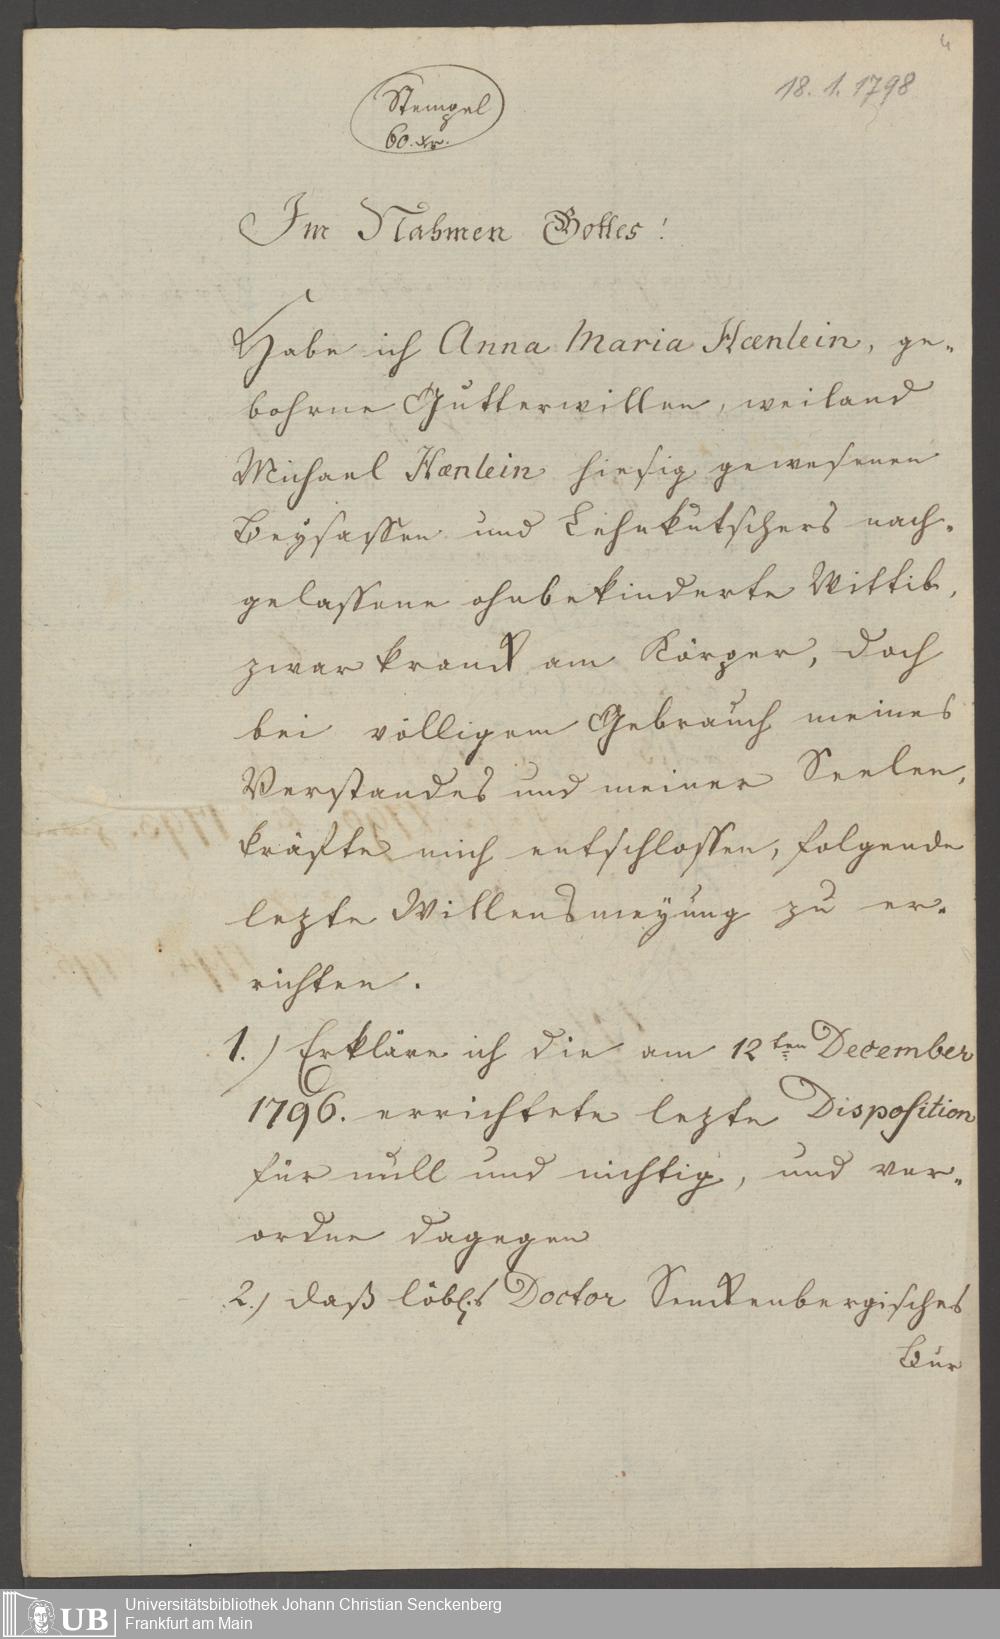 4
18. 1. 1798
Stempel
60. xr.
Im Nahmen Gottes!
Habe ich Anna Maria Hænlein, ge-
bohrne Gutterwillen, weiland
Michael Hænlein hiesig gewesenen
Beysassen und Lehnkutschers nach-
gelassene ohnbekinderte Wittib,
zwar kranck am Körper, doch
bei völligem Gebrauch meines
Verstandes und meiner Seelen,
kräfte mich entschlossen, folgende
lezte Willensmeyung zu er-
richten.
1.) Erkläre ich die am 12ten December
1796. errichtete lezte Disposition
für null und nichtig, und ver-
ordne dagegen
2.) daß löbl.s Doctor Senckenbergisches
Bür
UB
Universitätsbibliothek Johann Christian Senckenberg
Frankfurt am Main